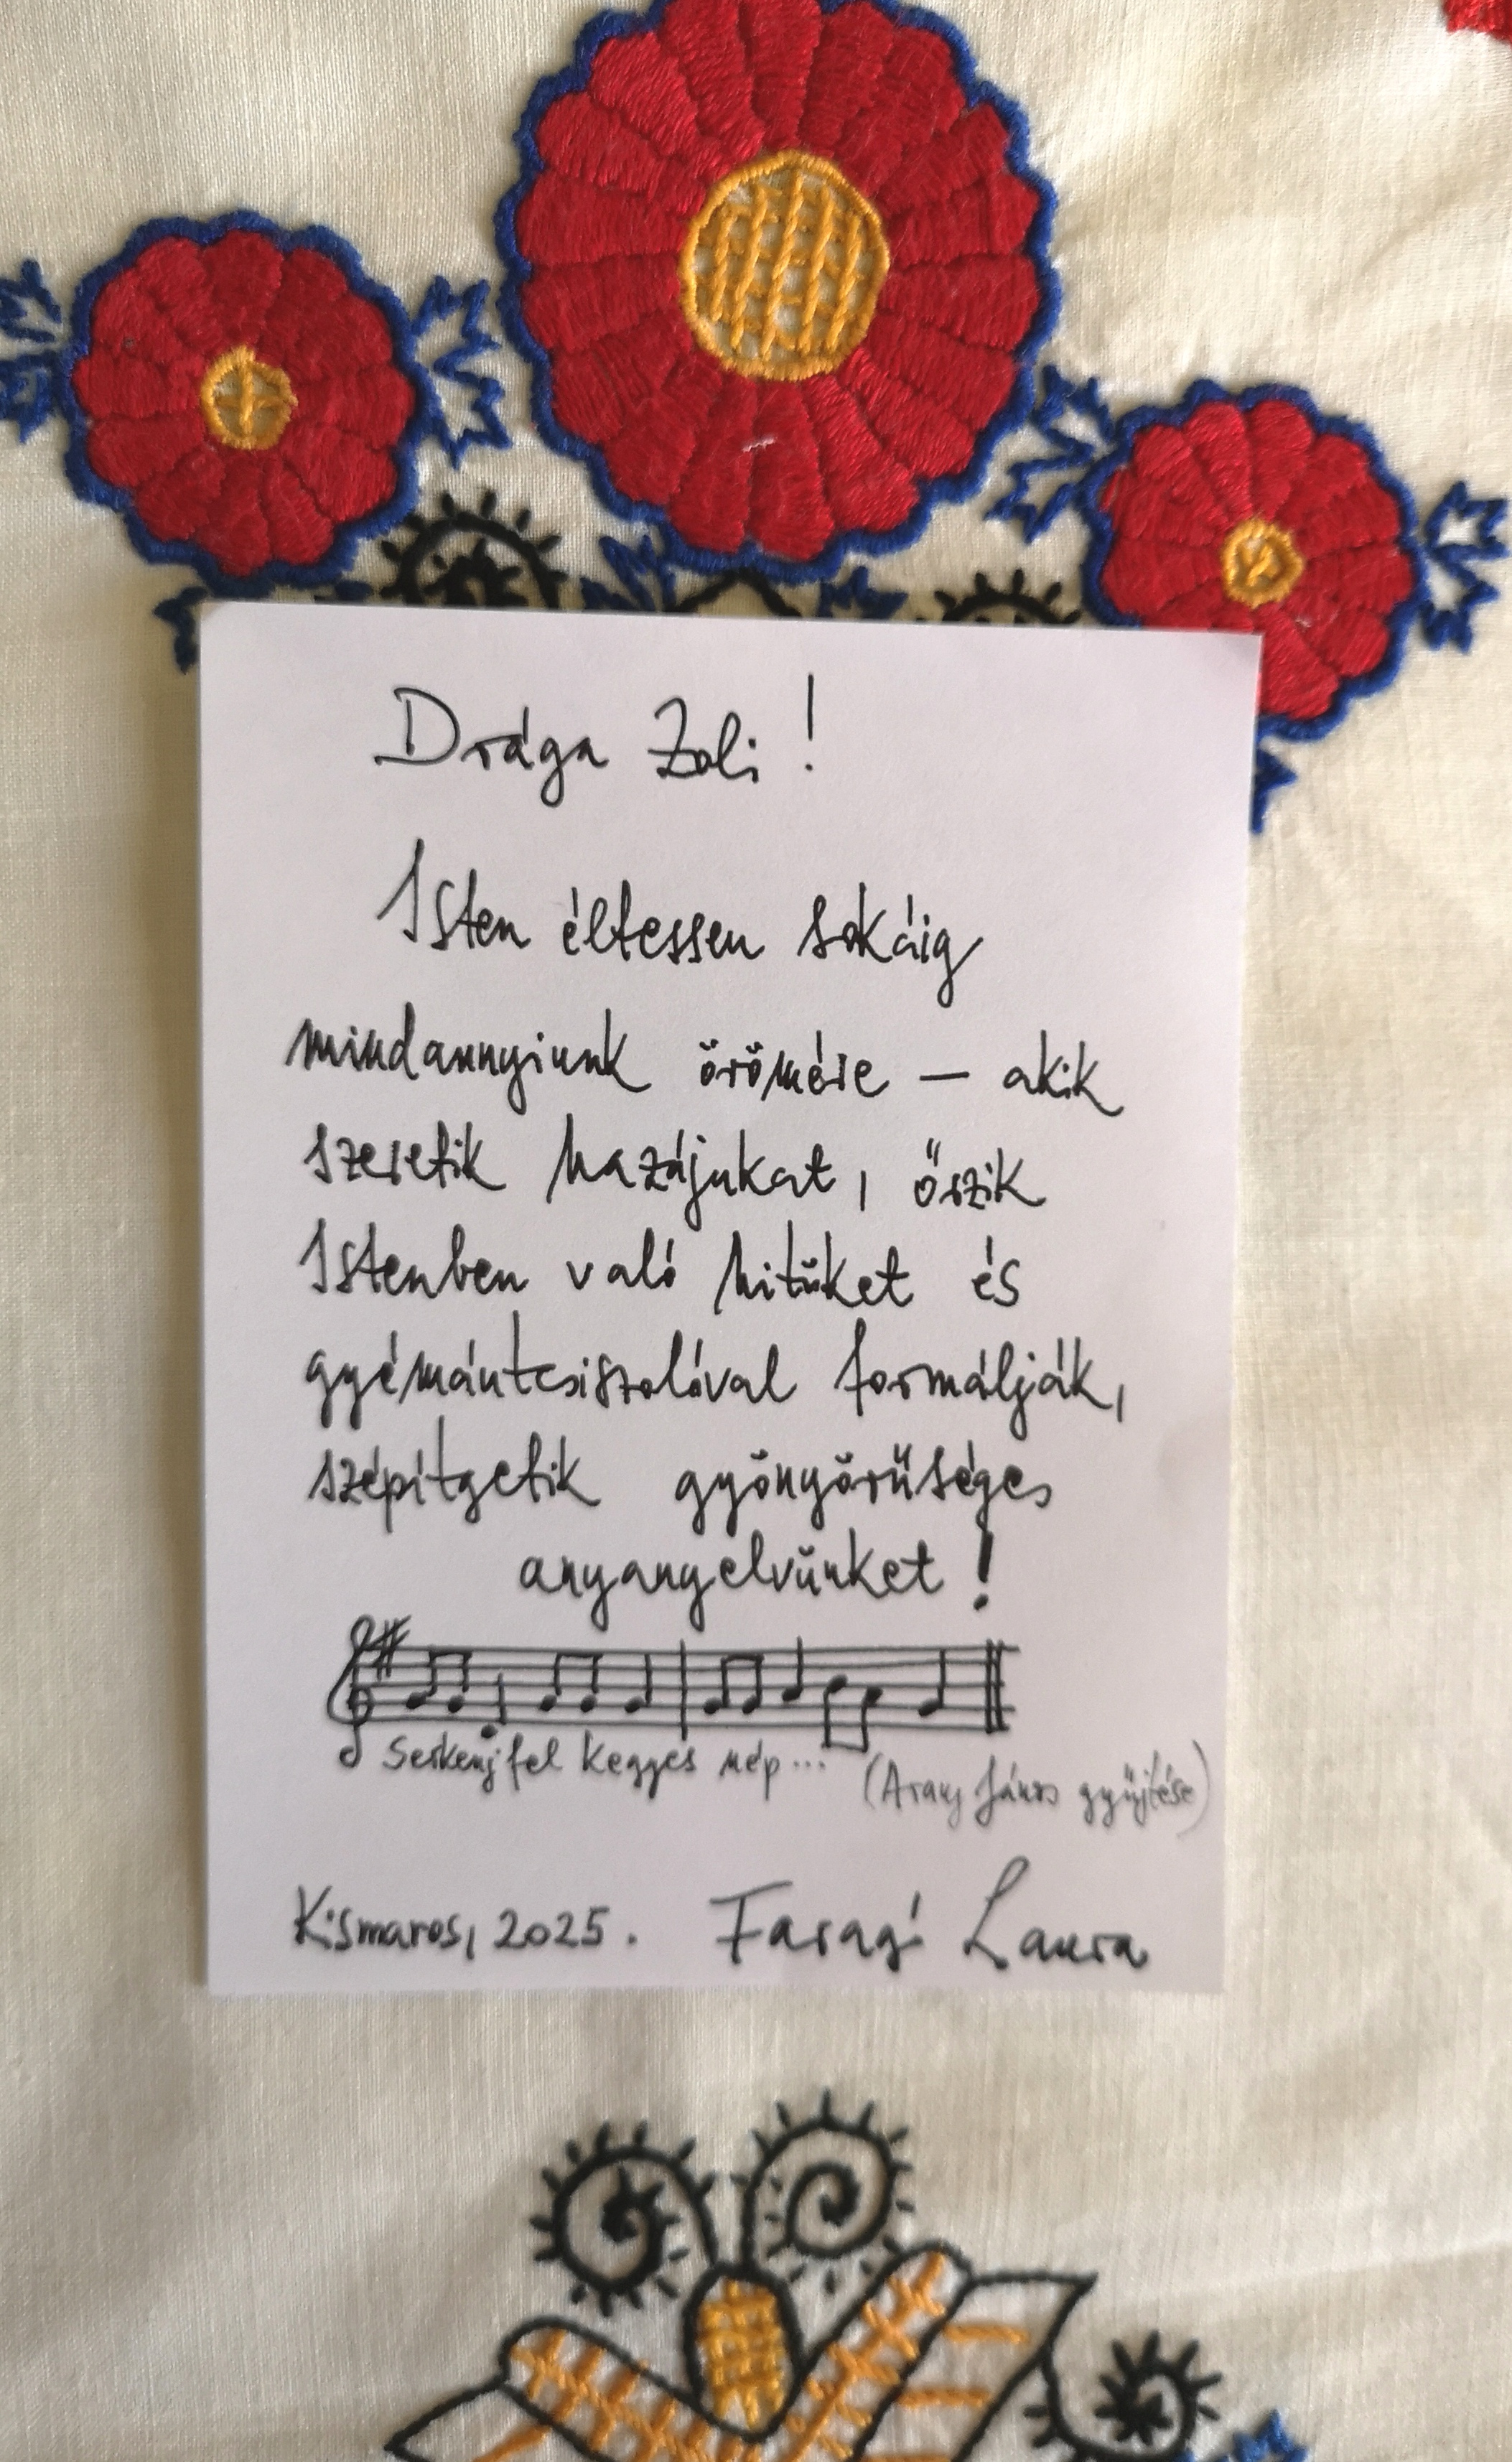 Drága Zoli!
Isten éltessen sokáig
mindannyiunk örömére – akik
szeretik hazájukat, őrzik
Istenben való hitüket és
gyémántcsiszolóval formálják,
szépítgetik gyönyörűséges
anyanyelvünket!
Serkenj fel kegyes nép...
(Arany János gyűjtése)
Kismaros, 2025. Faragó Laura